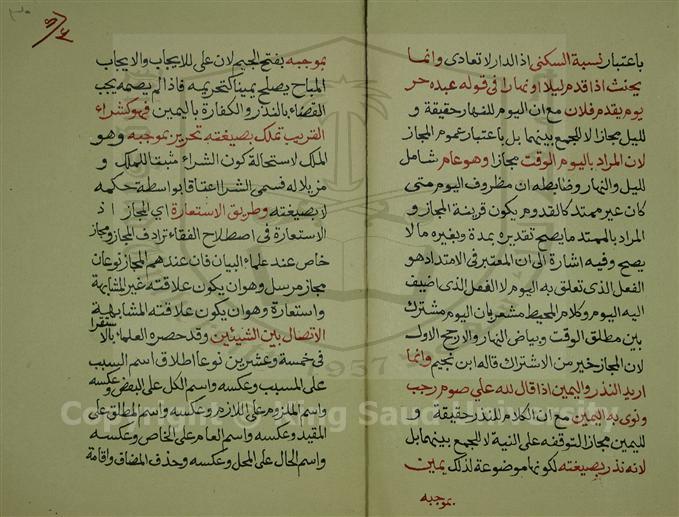 باعتبار نسبة السكنى اذ الدار لا تعادى وانما
يحنث اذا قدم ليلا او نهارا فى قوله عبده حر
يوم يقدم فلان مع ان اليوم للنهار حقيقة و
لليل مجازا لا للجمع بينهما بل باعتبار عموم المجاز
لان المراد باليوم الوقت مجازا وهو عام شامل
لليل والنهار وضابطه ان مظروف اليوم متى
كان غير ممتد كالقدوم يكون قرينة المجاز و
المراد بالممتد ما يصح تقديره بمدة وبغيره ما لا
يصح وفيه اشارة الى ان المعتبر فى الامتداد هو
الفعل الذى تعلق به اليوم لا الفعل الذى اضيف
اليه اليوم وكلام المحيط مشعر بان اليوم مشترك
بين مطلق الوقت وبياض النهار والارجح الاول
لان المجاز خير من الاشتراك قاله ابن نجيم وانما
اريد النذر واليمين اذا قال لله علي صوم رجب
ونوى به اليمين مع ان الكلام للنذر حقيقة و
لليمين مجازا لتوقفه على النية لا للجمع بينهما بل
لانه نذر بصيغته لكونها موضوعة لذلك يمين
بموجبه
بموجبه بفتح الجيم لان على للايجاب والايجاب
المباح يصلح يمينا كتحريمه فاذا لم يصمه يجب
القضاء بالنذر والكفارة باليمين فهو كشراء
القريب تملك بصيغته تحرير بموجبه وهو
الملك لاستحالة كون الشراء مثبتا للملك و
مزيلا له فسمى الشرا اعتاقا بواسطة حكمه
لا بصيغته وطريق الاستعارة اي المجاز اذ
الاستعارة فى اصطلاح الفقهاء ترادف المجاز ومجاز
خاص عند علماء البيان فان عندهم المجاز نوعان
مجاز مرسل وهو ان يكون علاقته غير المشابهة
واستعارة وهو ان يكون علاقته المشابهة
الاتصال بين الشيئين وقد حصره العلماء بالاستقرا
فى خمسة وعشرين نوعا اطلاق اسم السبب
على المسبب وعكسه واسم الكل على البعض وعكسه
واسم الملزوم على اللازم وعكسه واسم المطلق على
المقيد وعكسه واسم العام على الخاص وعكسه
واسم الحال على المحل وعكسه وحذف المضاف واقامة
Copyright © King Saud University
1957